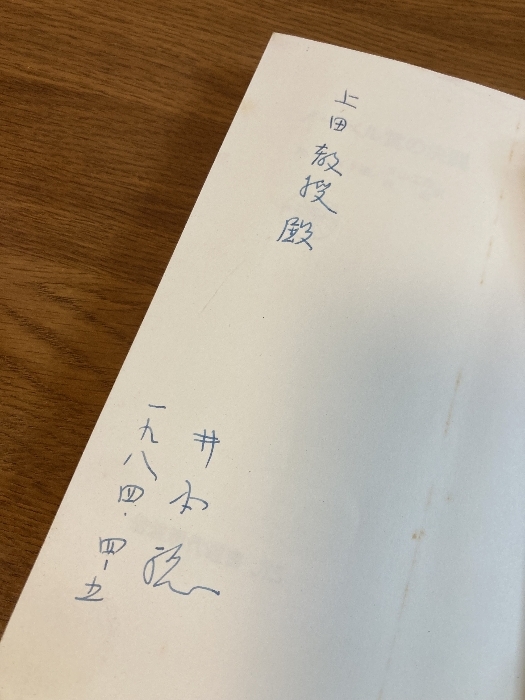 上田教授殿
井本稔
一九八四・四・五